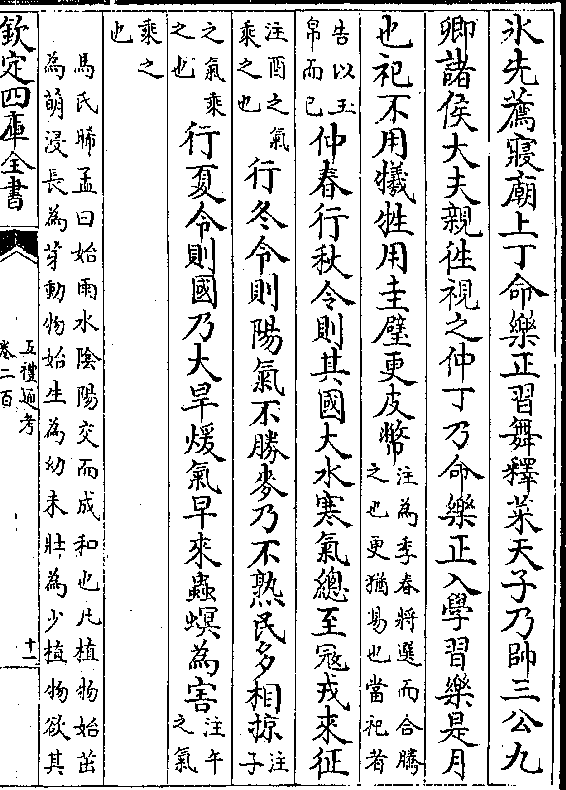 氷先薦寢廟上丁命樂正習舞釋菜天子乃帥三公九
卿諸侯大夫親徃視之仲丁乃命樂正入學習樂是月
也祀不用犧牲用圭璧更皮幣注為季春將選而合騰
之也更猶易也當祀者
告以玉
帛而已仲春行秋令則其國大水寒氣總至寇戎來征
注酉之氣
乘之也行冬令則陽氣不勝麥乃不熟民多相掠注
子
之氣乘
之也行夏令則國乃大旱煖氣早來蟲螟為害注午
之氣
乘之
也
馬氏晞孟曰始雨水陰陽交而成和也凡植物始茁
為萌浸長為芽動物始生為幼未壯為少植物欲其
欽定四庫全書
五禮通考
卷二百
十一